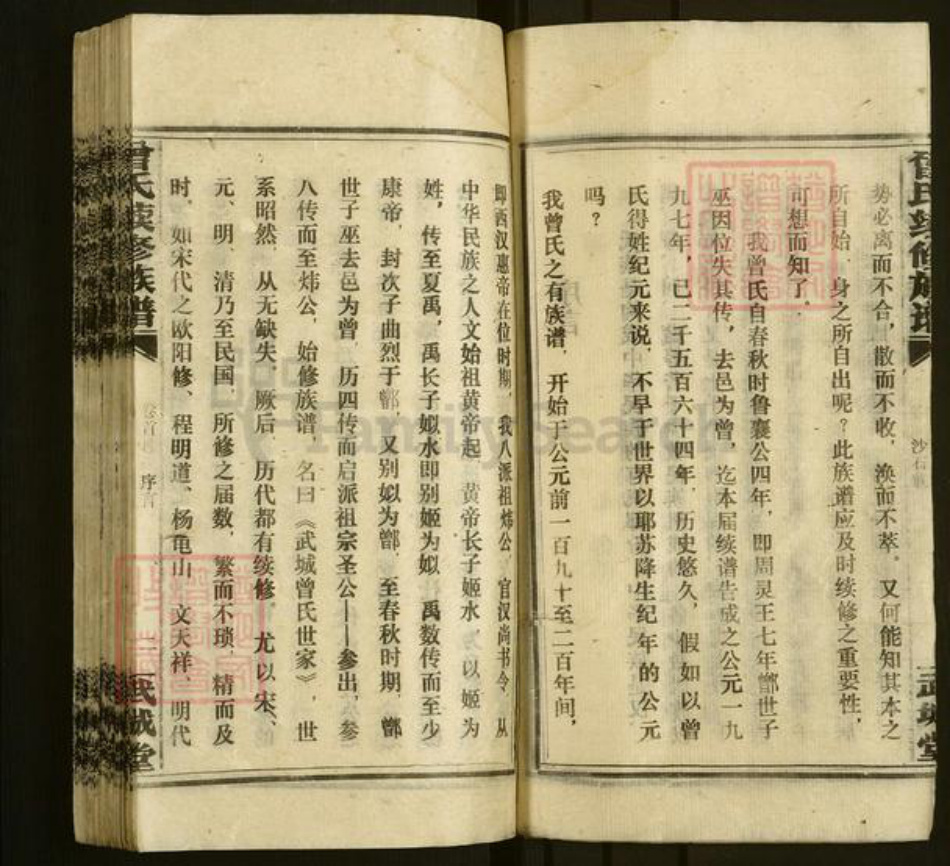 势必离而不合，散而不收，涣而不萃。又何能知其本之
所自始、身之所自出呢？此族谱应及时续修之重要性，
可想而知了。
我曾氏自春秋时鲁襄公四年，即周灵王七年鄫世子
巫因位失其传，去邑为曾，迄本届续谱告成之公元一九
九七年，已二千五百六十四年，历史悠久，假如以曾
氏得姓纪元来说，不早于世界以耶苏降生纪年的公元
吗？
我曾氏之有族谱，开始于公元前一百九十至二百年间，
即西汉惠帝在位时期，我八派祖炜公，官汉尚书令，从
中华民族之人文始祖黄帝起，黄帝长子姬水，以姬为
姓，传至夏禹，禹长子姒水即别姬为姒，禹数传而至少
康帝，封次子曲烈于鄫，又别姒为鄫，至春秋时期，鄫
世子巫去邑为曾，历四传而启派祖宗圣公——参出，参
八传而至炜公，始修族谱，名曰《武城曾氏世家》，世
系昭然，从无缺失，厥后，历代都有续修，尤以宋、
元、明、清乃至民国，所修之届数，繁而不琐，精而及
时，如宋代之欧阳修、程明道、杨龟山、文天祥，明代
曾氏续修族谱
卷首
序言
二
武城堂
曾氏续修族谱
沙石
武城堂
FamilySearch